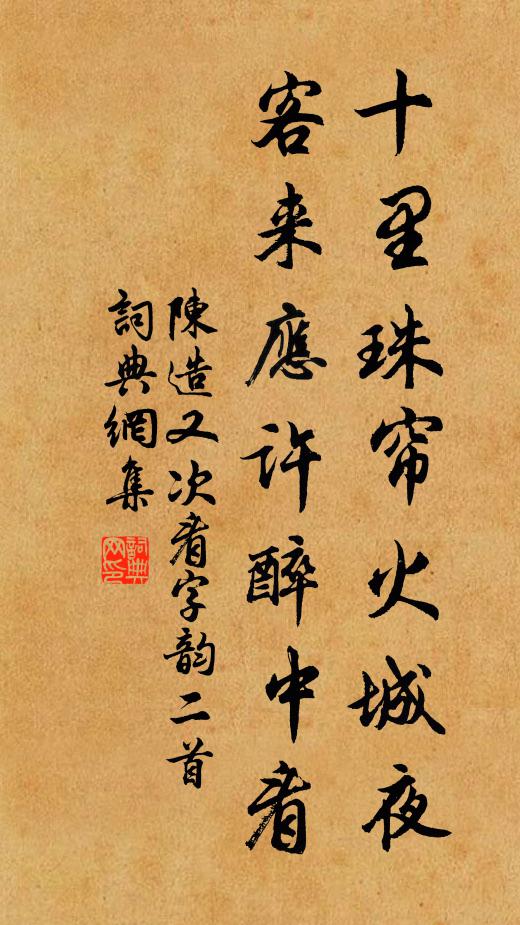 十里珠帘火城夜
客来應许醉中看
陳造又次看字韵二首
詞典網集
詞典网印